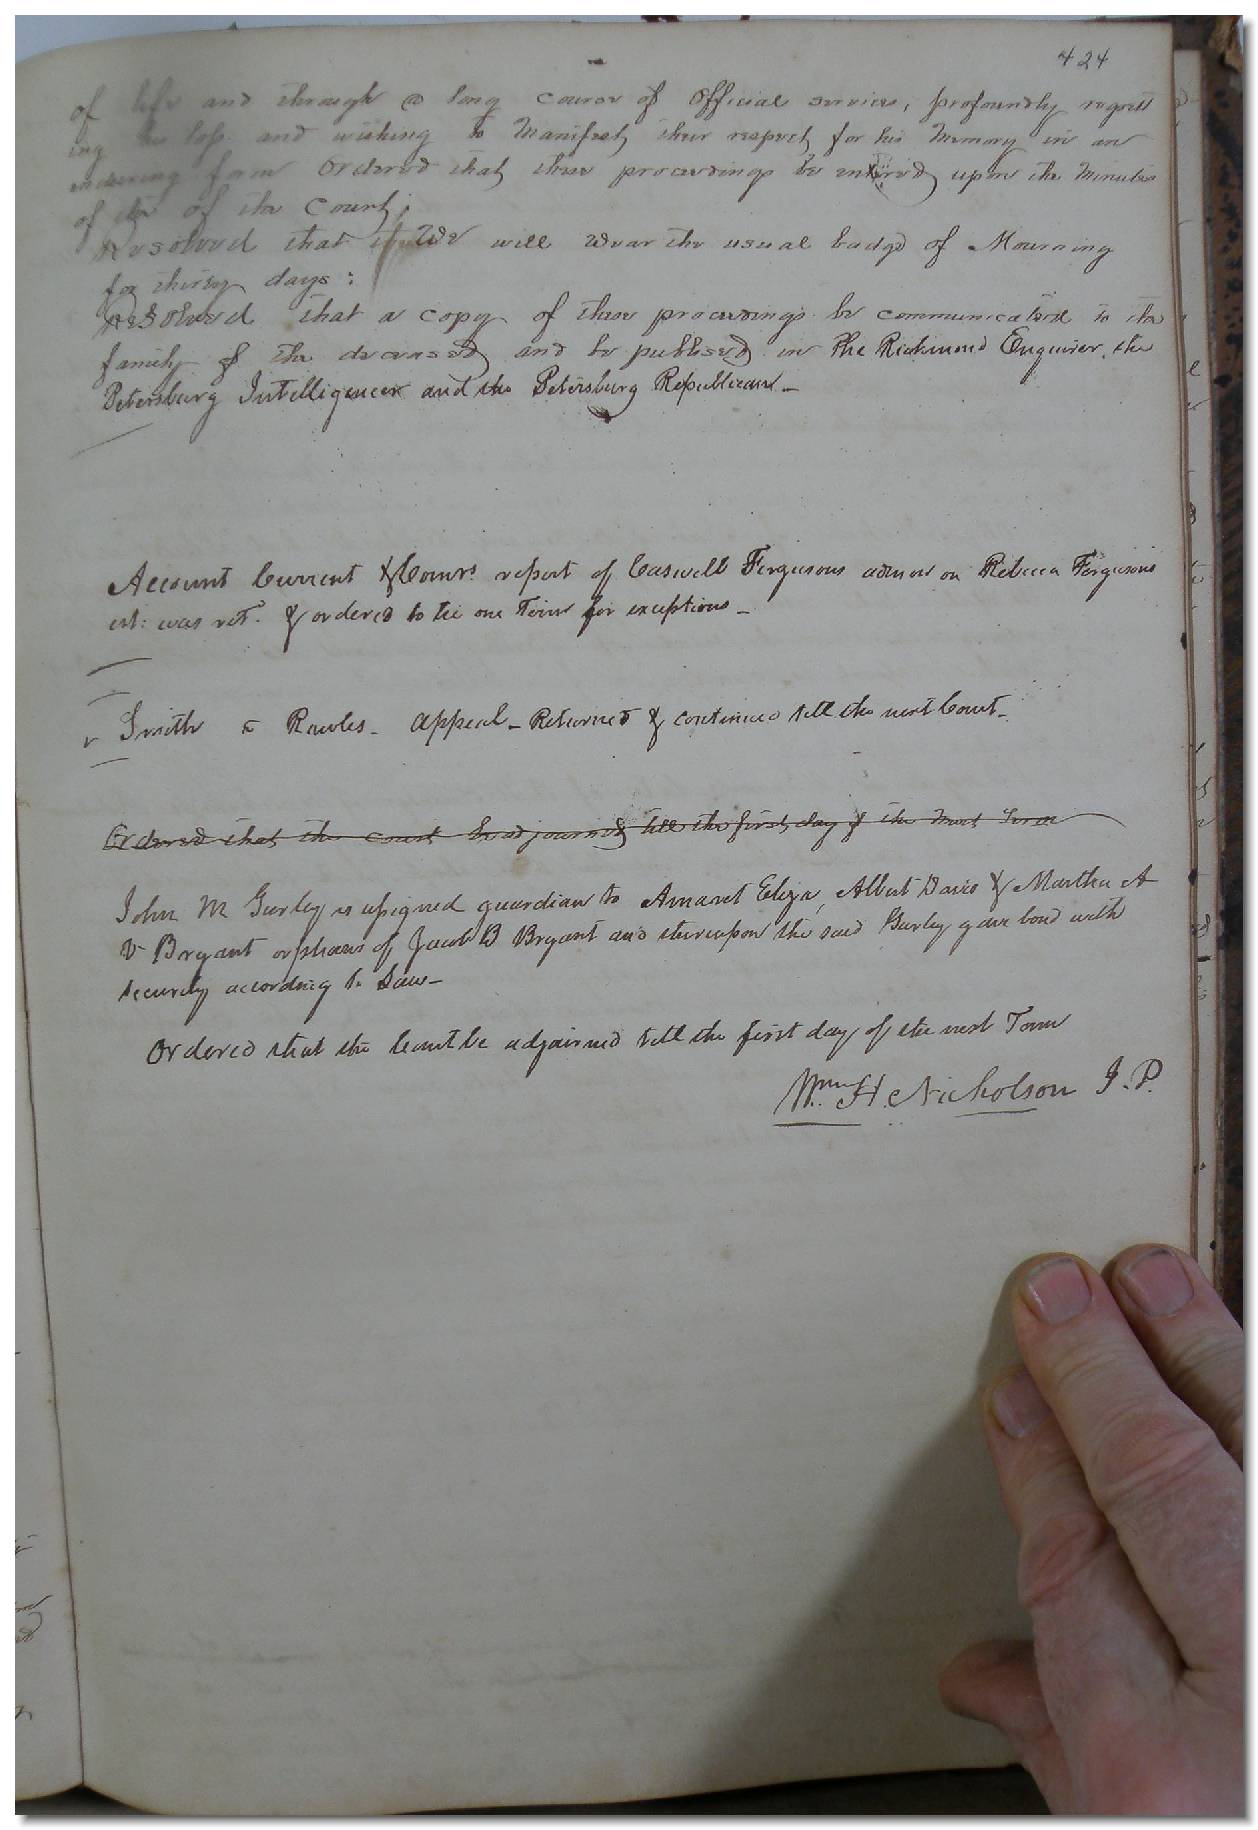 424
of life and through a long course of official services, profoundly regrett
ing his loss and wishing to Manifest their respect for his Memory in an
endearing form Ordered that these proceedings be entered upon the Minutes
of the of the Court;
Resolved that We will wear the usual badge of Mourning
for thirty days:
Resolved that a copy of these proceedings be communicated to the
family of the deceased and be published in The Richmond Enquirer, the
Petersburg Intelligencer and the Petersburg Republican_
Account Current & Comrs. report of Caswell Fergusons admor on Rebecca Fergusons
est: was ret. & ordered to lie one Term for exceptions_
Smith Rawles_ Appeal_ Returned & continued till the next Court_
Ordered that the court be adjourned till the first day of the Next Term
John M Gurley is assigned guardian to Amanet Eliza, Albert Davis & Martha A
V Bryant orphans of Jacob B Bryant and thereupon the said Gurley gave bond with
security according to Law_
Ordered that the Court be adjourned till the first day of the next Term
Wm. H. Nicholson J. P.